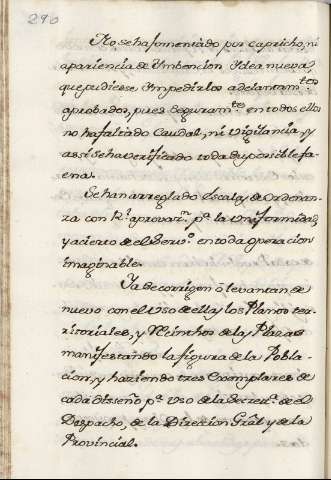 290
No se ha fomentado por capricho, ni
apariencia de Ymbencion Ydea nueva,
que pudiese Impedir los adelantam.tos
aprobados, pues seguram.te en todos ellos
no ha faltado Caudal, ni Vigilancia, y
assi se ha verificado toda disposible fa-
ena.
Se han arreglado Escalas de Ordenan-
za con R.l aprovaz.n p.a la Uniformidad,
y acierto de el Serv.o en toda operacion
imaginable.
Ya se corrigen ò levantan de
nuevo con el Uso de ellas los Planos ter-
ritoriales, y Recinthos de las Plazas
manifestando la figura de la Pobla-
cion, y haziendo tres Exemplares de
cada diseño p.a uso de la Secret.a de el
Despacho, de la Direccion Grâl y de la
Provincial.